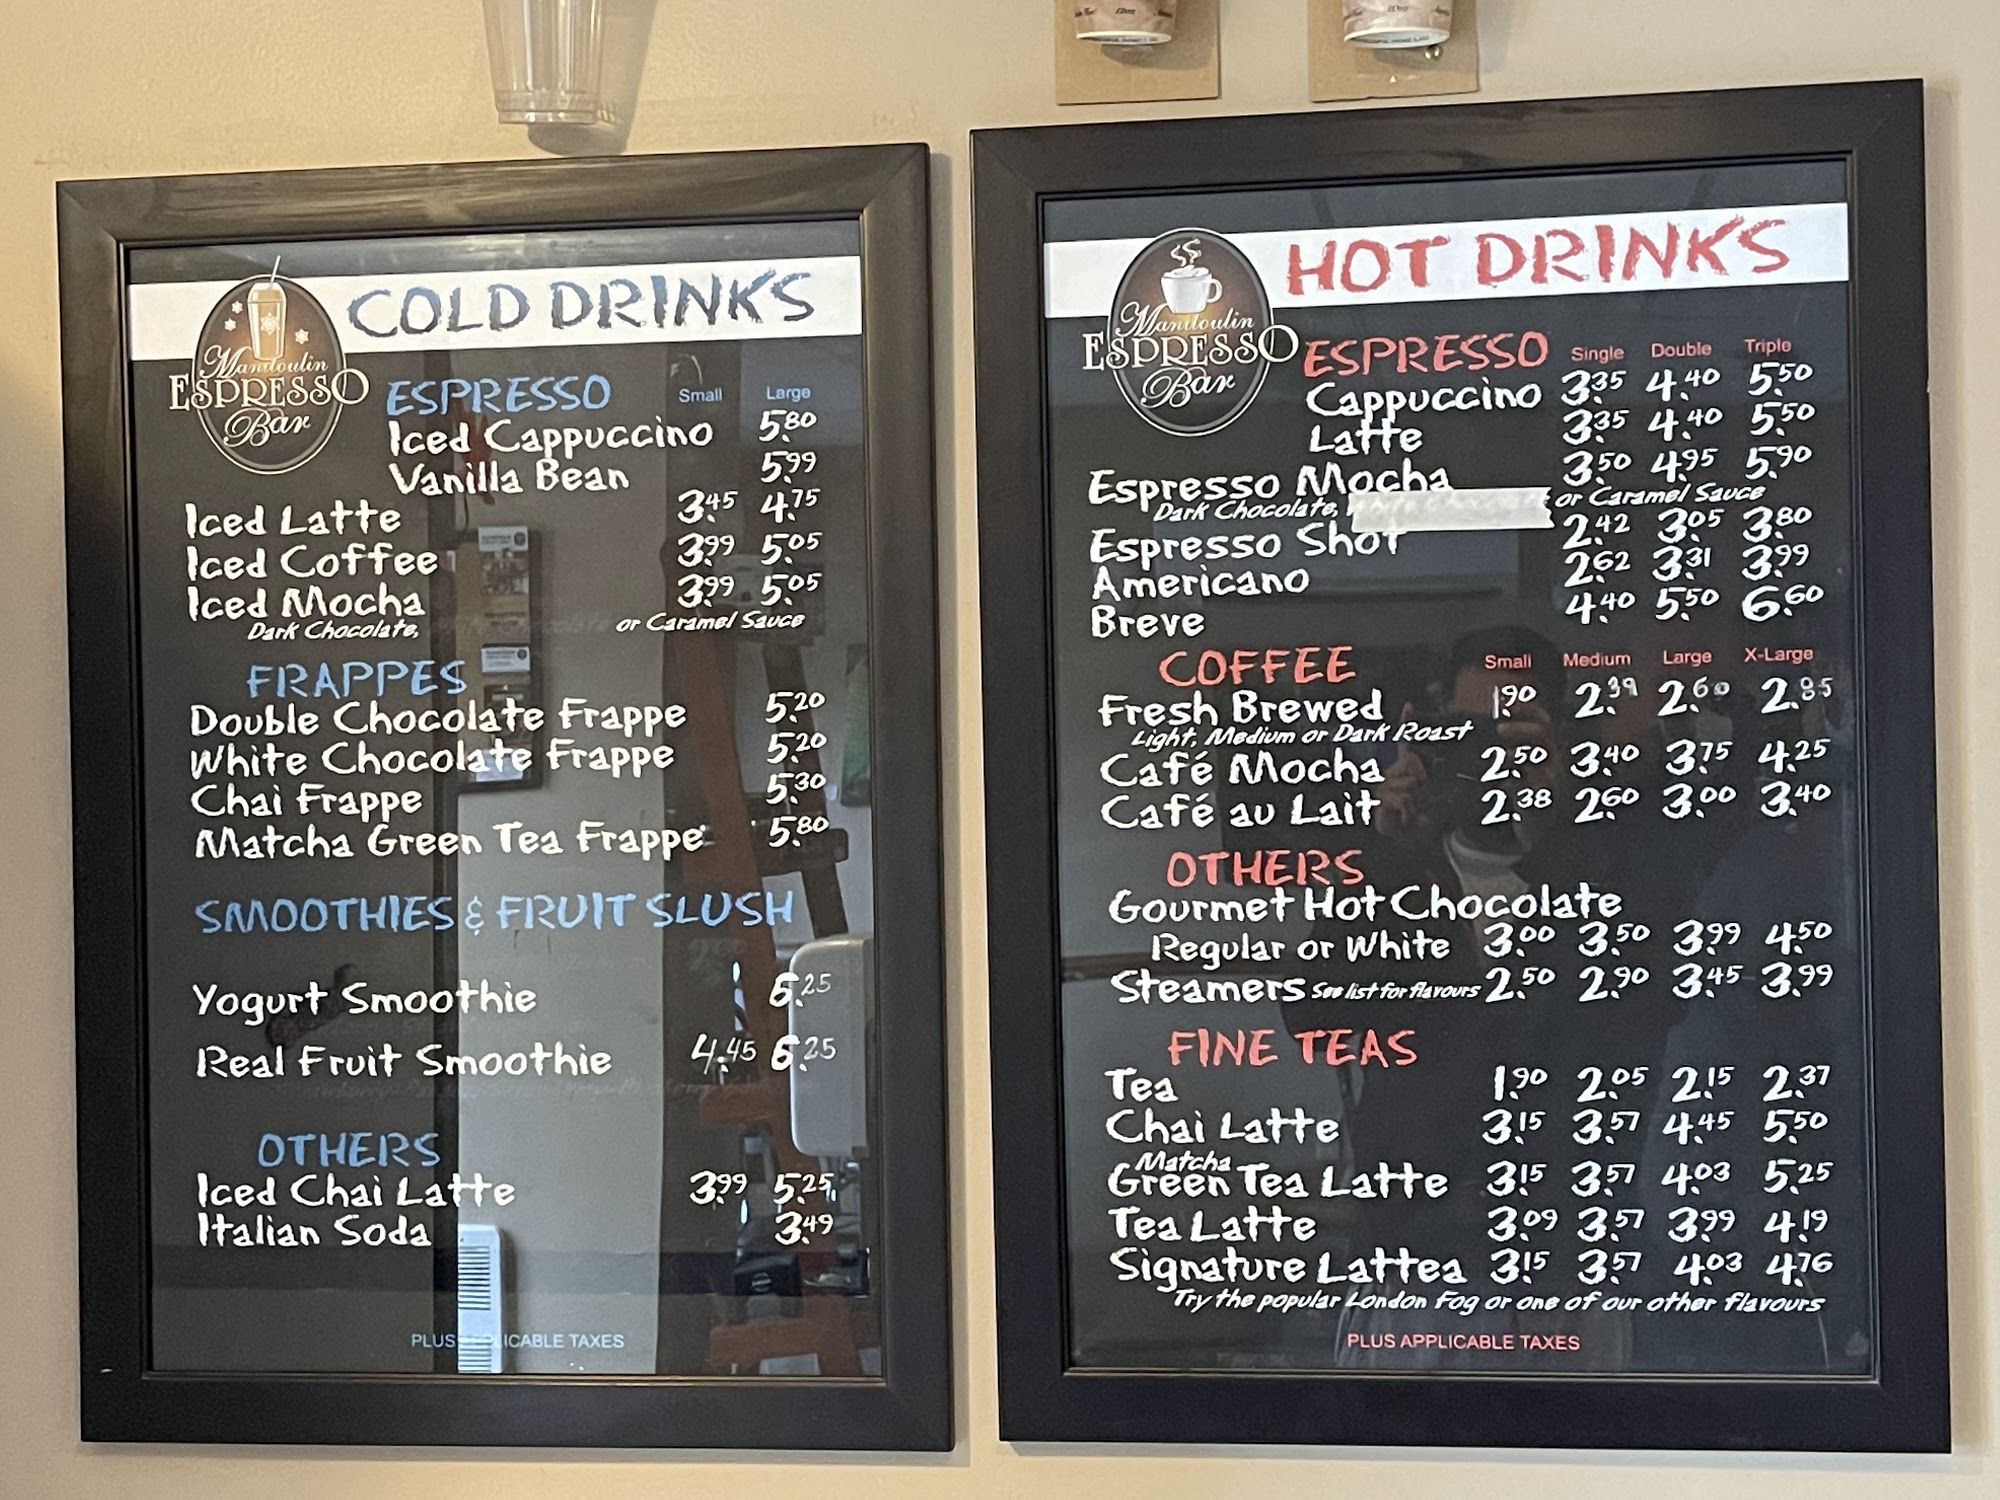 COLD DRINKS
Manitoulin
ESPRESSO
Bar
ESPRESSO Small Large
Iced Cappuccino 5.80
Vanilla Bean 5.99
Iced Latte 3.45 4.75
Iced Coffee 3.99 5.05
Iced Mocha 3.99 5.05
Dark Chocolate, or Caramel Sauce
FRAPPES
Double Chocolate Frappe 5.20
White Chocolate Frappe 5.20
Chai Frappe 5.30
Matcha Green Tea Frappe 5.80
SMOOTHIES & FRUIT SLUSH
Yogurt Smoothie 6.25
Real Fruit Smoothie 4.45 6.25
OTHERS
Iced Chai Latte 3.99 5.25
Italian Soda 3.49
PLUS APPLICABLE TAXES
HOT DRINKS
Manitoulin
ESPRESSO
Bar
ESPRESSO Single Double Triple
Cappuccino 3.35 4.40 5.50
Latte 3.35 4.40 5.50
Espresso Mocha 3.50 4.95 5.90
Dark Chocolate, or Caramel Sauce
Espresso Shot 2.42 3.05 3.80
Americano 2.62 3.31 3.99
Breve 4.40 5.50 6.60
COFFEE Small Medium Large X-Large
Fresh Brewed 1.90 2.39 2.60 2.85
Light, Medium or Dark Roast
Café Mocha 2.50 3.40 3.75 4.25
Café au Lait 2.38 2.60 3.00 3.40
OTHERS
Gourmet Hot Chocolate
Regular or White 3.00 3.50 3.99 4.50
Steamers See list for flavours 2.50 2.90 3.45 3.99
FINE TEAS
Tea 1.90 2.05 2.15 2.37
Chai Latte 3.15 3.57 4.45 5.50
Matcha
Green Tea Latte 3.15 3.57 4.03 5.25
Tea Latte 3.09 3.57 3.99 4.19
Signature Lattea 3.15 3.57 4.03 4.76
Try the popular London Fog or one of our other flavours
PLUS APPLICABLE TAXES